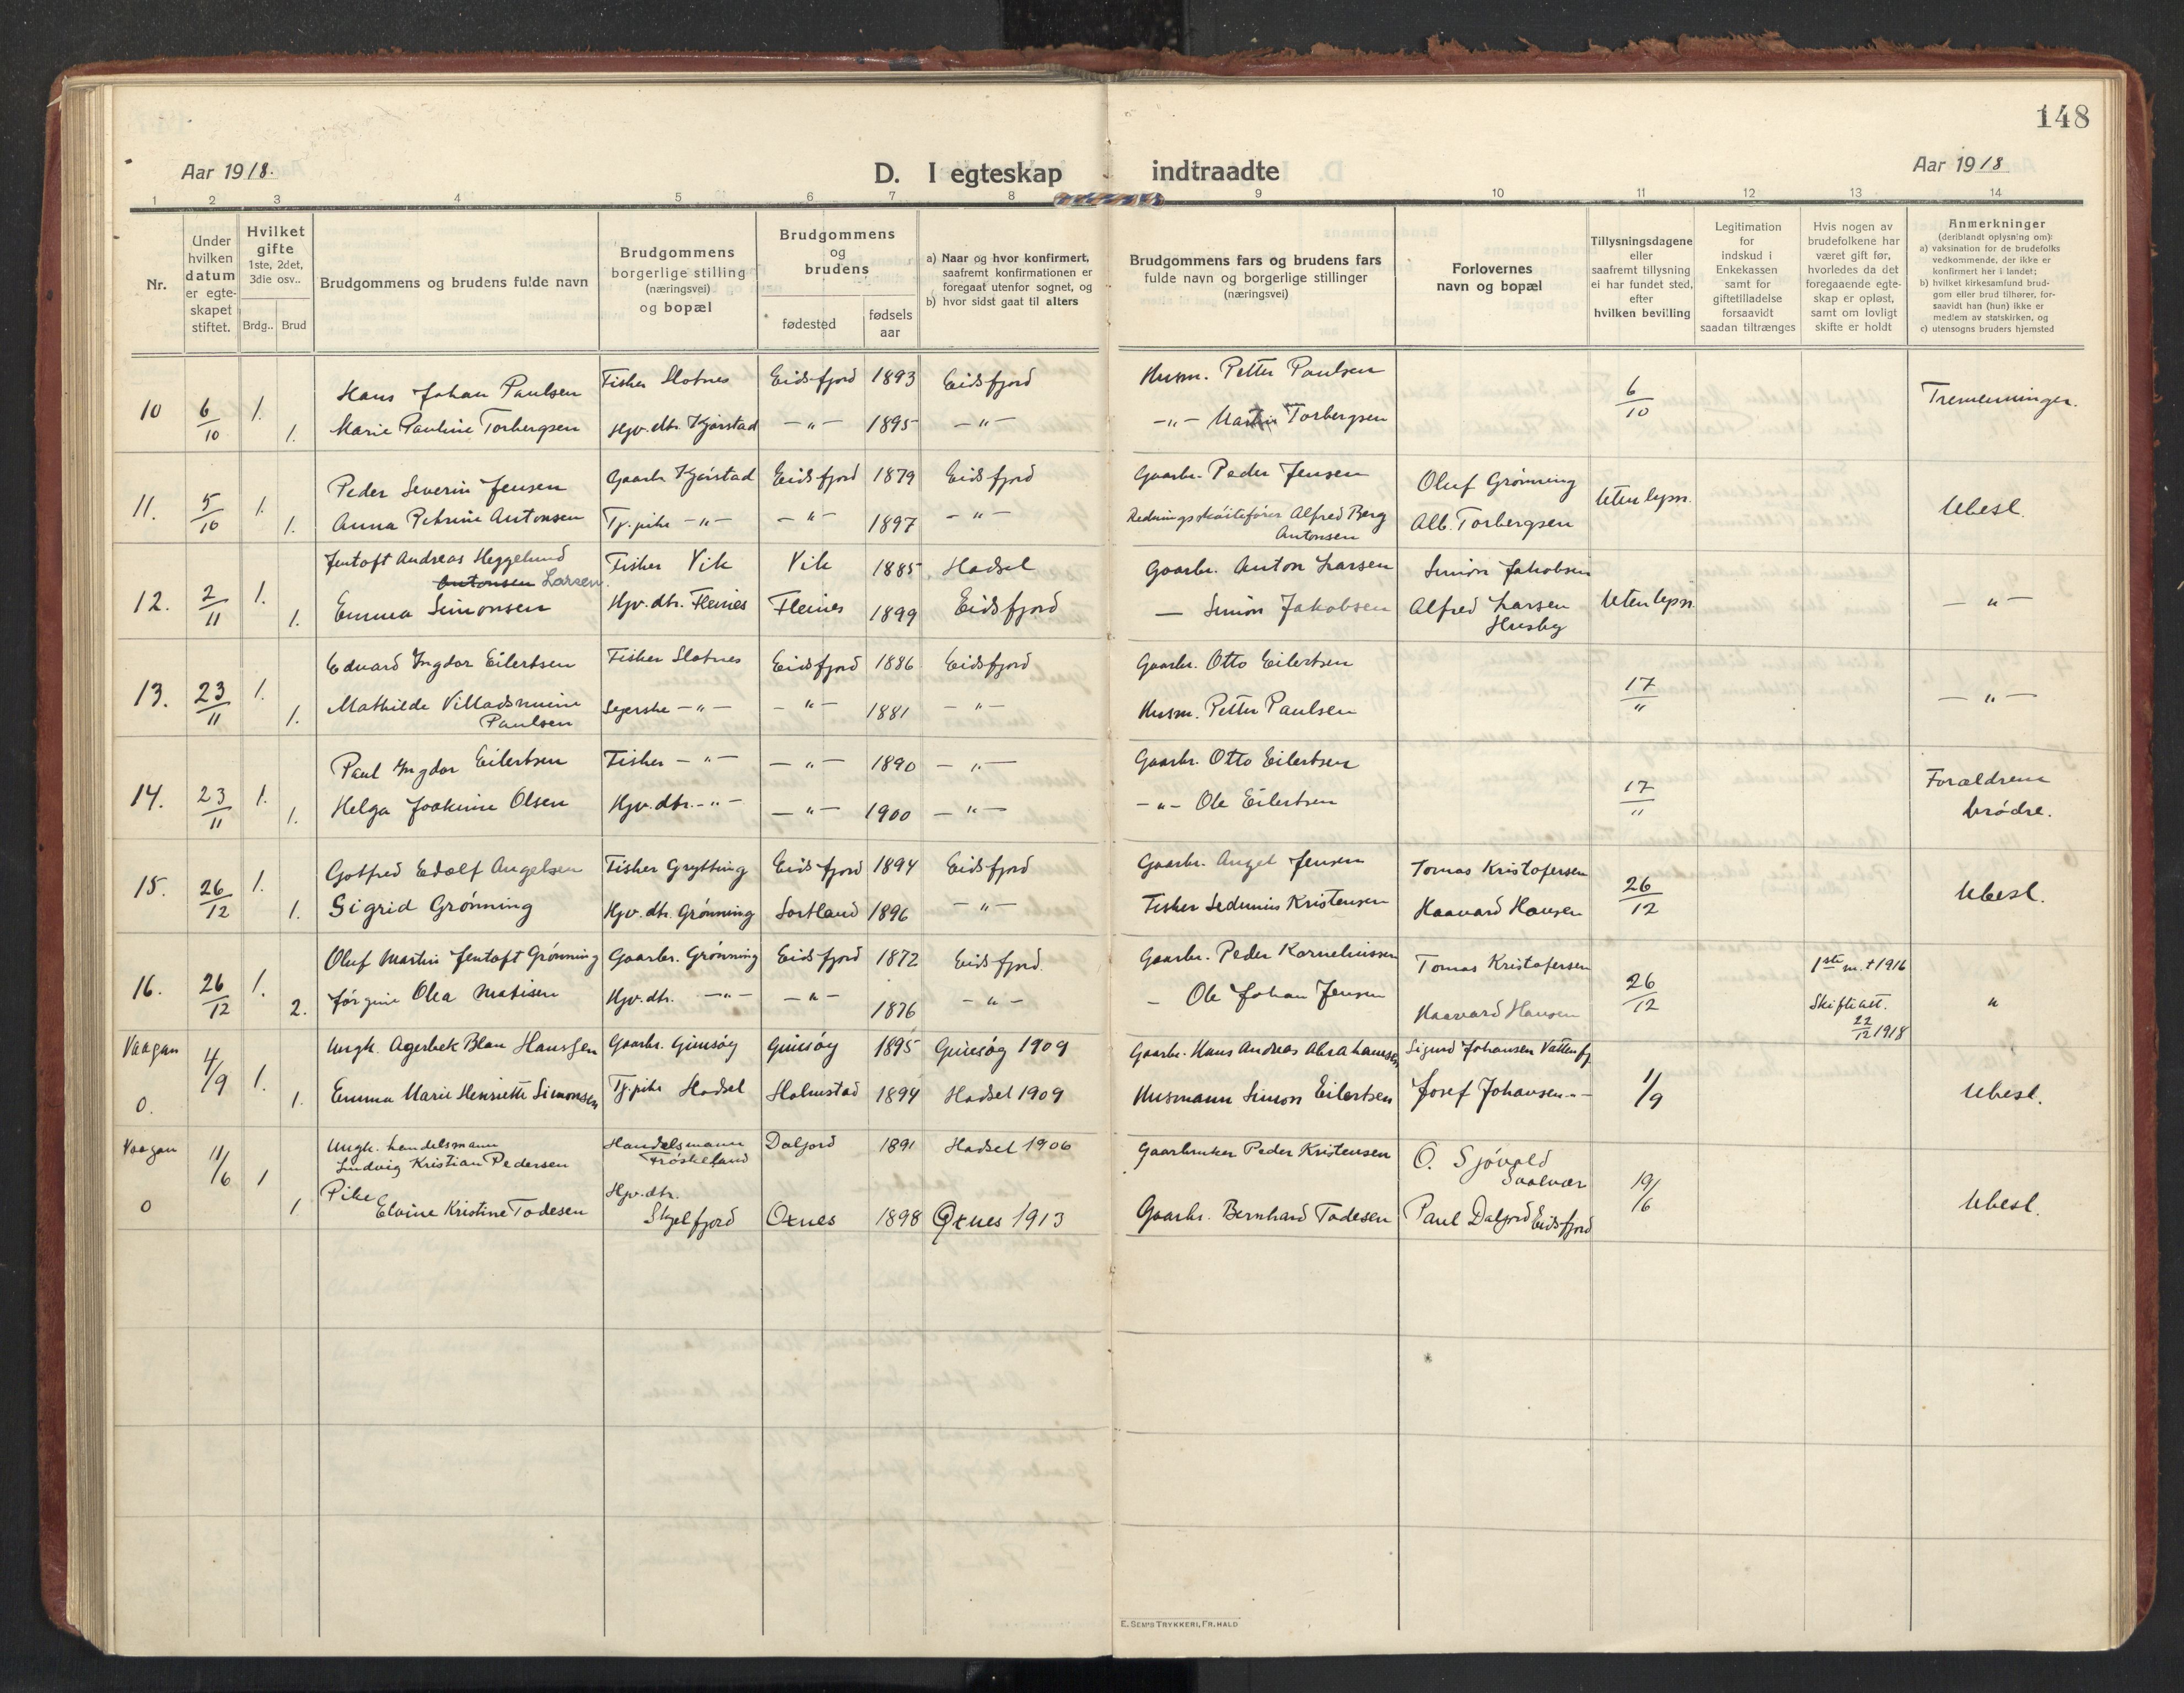 148
Aar 1918.
D. I egteskap indtraadte
Aar 1918
1 2 3 4 5 6 7 8 9 10 11 12 13 14
Nr.
Under hvilken datum er egte-skapet stiftet.
Hvilket gifte 1ste, 2det, 3die osv..
Brdg.. Brud
Brudgommens og brudens fulde navn
Brudgommens borgerlige stilling (næringsvei) og bopæl
Brudgommens og brudens
fødested
fødsels aar
a) Naar og hvor konfirmert, saafremt konfirmationen er foregaat utenfor sognet, og
b) hvor sidst gaat til alters
Brudgommens fars og brudens fars fulde navn og borgerlige stillinger (næringsvei)
Forlovernes navn og bopæl
Tillysningsdagene eller saafremt tillysning ei har fundet sted, efter hvilken bevilling
Legitimation for indskud i Enkekassen samt for giftetilladelse forsaavidt saadan tiltrænges
Hvis nogen av brudefolkene har været gift før, hvorledes da det foregaaende egte-skap er opløst, samt om lovligt skifte er holdt
Anmerkninger (deriblandt oplysning om):
a) vaksination for de brudefolks vedkommende, der ikke er konfirmert her i landet;
b) hvilket kirkesamfund brud-gom eller brud tilhører, for-saavidt han (hun) ikke er medlem av statskirken, og
c) utensogns bruders hjemsted
10 6/10 1. Hans Johan Paulsen Fisker Slotnes Eidsfjord 1893 Eidsfjord Husm. Petter Paulsen 6/10 Tremenninger.
1. Marie Pauline Torbergsen Hjv. dtr. Kjørstad —"— 1895 —"— —"— Martin Torbergsen
11. 5/10 1. Peder Severin Jensen Gaarbr Kjørstad Eidsfjord 1879 Eidsfjord Gaarbr. Peder Jensen Oluf Grønning Uten lysn. Ubesl.
1. Anna Petrine Antonsen Tj. pike —"— —"— 1897 —"— Redningsskøitefører Alfred Berg Antonsen Alb. Torbergsen
12. 2/11 1. Jentoft Andreas Heggelund Antonsen Larsen. Fisker Vik Vik 1885 Hadsel Gaarbr. Anton Larsen Simon Jakobsen Uten lysn. —"—
1. Emma Simonsen Hjv. dtr. Fleines Fleines 1899 Eidsfjord — Simon Jakobsen Alfred Larsen Husby
13. 23/11 1. Edvard Ingdor Eilertsen Fisker Slotnes Eidsfjord 1886 Eidsfjord Gaarbr. Otto Eilertsen 17/" —"—
1. Mathilde Villadsmine Paulsen —"— —"— 1881 —"— Husm. Petter Paulsen
14. 23/11 1. Paul Ingdor Eilertsen Fisker —"— —"— 1890 —"— Gaarbr. Otto Eilertsen 17/11 Forældrene brødre.
1. Helga Joakime Olsen Hjv. dtr. —"— —"— 1900 —"— —"— Ole Eilertsen
15. 26/12 1. Gotfred Edolf Angelsen Fisker Grytting Eidsfjord 1894 Eidsfjord Gaarbr. Angel Jensen Tomas Kristofersen 26/12 Ubesl.
1. Sigrid Grønning Hjv. dtr. Grønning Sortland 1896 —"— Fisker Sedenius Kristensen Haavard Hansen
16. 26/12 1. Oluf Martin Jentoft Grønning Gaarbr. Grønning Eidsfjord 1872 Eidsfjord. Gaarbr. Peder Korneliussen Tomas Kristofersen 26/12 1ste m. † 1916 "
2. Jørgine Olea Matisen Hjv. dtr. —"— —"— 1876 —"— — Ole Johan Jensen Haavard Hansen Skifteatt. 22/12 1918
Vaagan 4/9 1. Ungk. Agerbek Blau Hanssen Gaarbr. Gimsøy Gimsøy 1895 Gimsøy 1909 Gaarbr. Hans Andreas Abrahamsen Sigurd Johansen Vattenfj. 1/9 Ubesl.
0. 1. Emma Marie Henriette Simonsen Tj. pike Hadsel Holmstad 1894 Hadsel 1909 Husmann Simon Eilertsen Josef Johansen —"—
Vaagan 11/6 1 Ungk. handelsmann Ludvig Kristian Pedersen Handelsmann Frøskeland Dalfjord 1891 Hadsel 1906 Gaarbruker Peder Kristensen O. Sjøvold Svolvær 19/6 Ubesl.
0 1 Pike Elvine Kristine Todesen Hjv. dtr. Skjelfjord Oxnes 1898 Øxnes 1913 Gaarbr. Bernhard Todesen Paul Dalfjord Eidsfjord
E. Sem's Trykkeri, Fr.hald